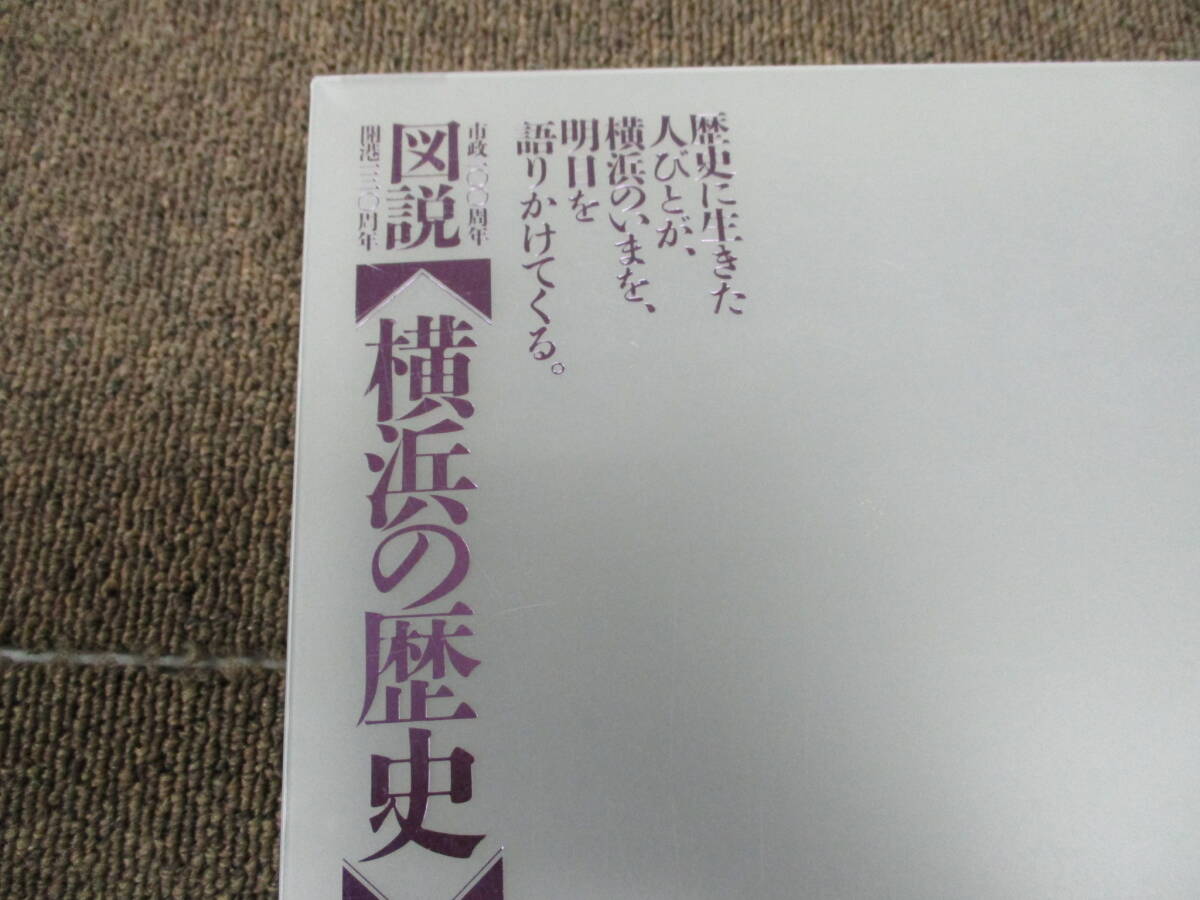 歴史に生きた
人びとが、
横浜のいまを、
明日を
語りかけてくる。
市政一〇〇周年
開港一三〇周年
図説
横浜の歴史